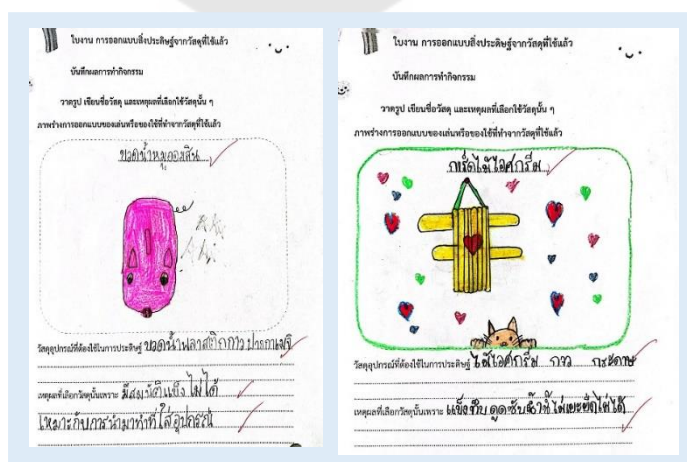 ใบงาน การออกแบบสิ่งประดิษฐ์จากวัสดุที่ใช้แล้ว
บันทึกผลการทำกิจกรรม
วาดรูป เขียนชื่อวัสดุ และเหตุผลที่เลือกใช้วัสดุนั้น ๆ
ภาพร่างการออกแบบของเล่นหรือของใช้ที่ทำจากวัสดุที่ใช้แล้ว
ขวดน้ำหมูออมสิน
วัสดุอุปกรณ์ที่ต้องใช้ในการประดิษฐ์ ขวดน้ำพลาสติก กาว ปากกาเมจิ
เหตุผลที่เลือกวัสดุนั้นเพราะ มีสมบัติแข็ง ไม่ได้
เหมาะกับการนำมาทำที่ใส่อุปกรณ์
ใบงาน การออกแบบสิ่งประดิษฐ์จากวัสดุที่ใช้แล้ว
บันทึกผลการทำกิจกรรม
วาดรูป เขียนชื่อวัสดุ และเหตุผลที่เลือกใช้วัสดุนั้น ๆ
ภาพร่างการออกแบบของเล่นหรือของใช้ที่ทำจากวัสดุที่ใช้แล้ว
ไม้ไอศกรีม
วัสดุอุปกรณ์ที่ต้องใช้ในการประดิษฐ์ ไม้ไอศกรีม กาว กระดาษ
เหตุผลที่เลือกวัสดุนั้นเพราะ แข็ง ทึบ ดูดซับน้ำ